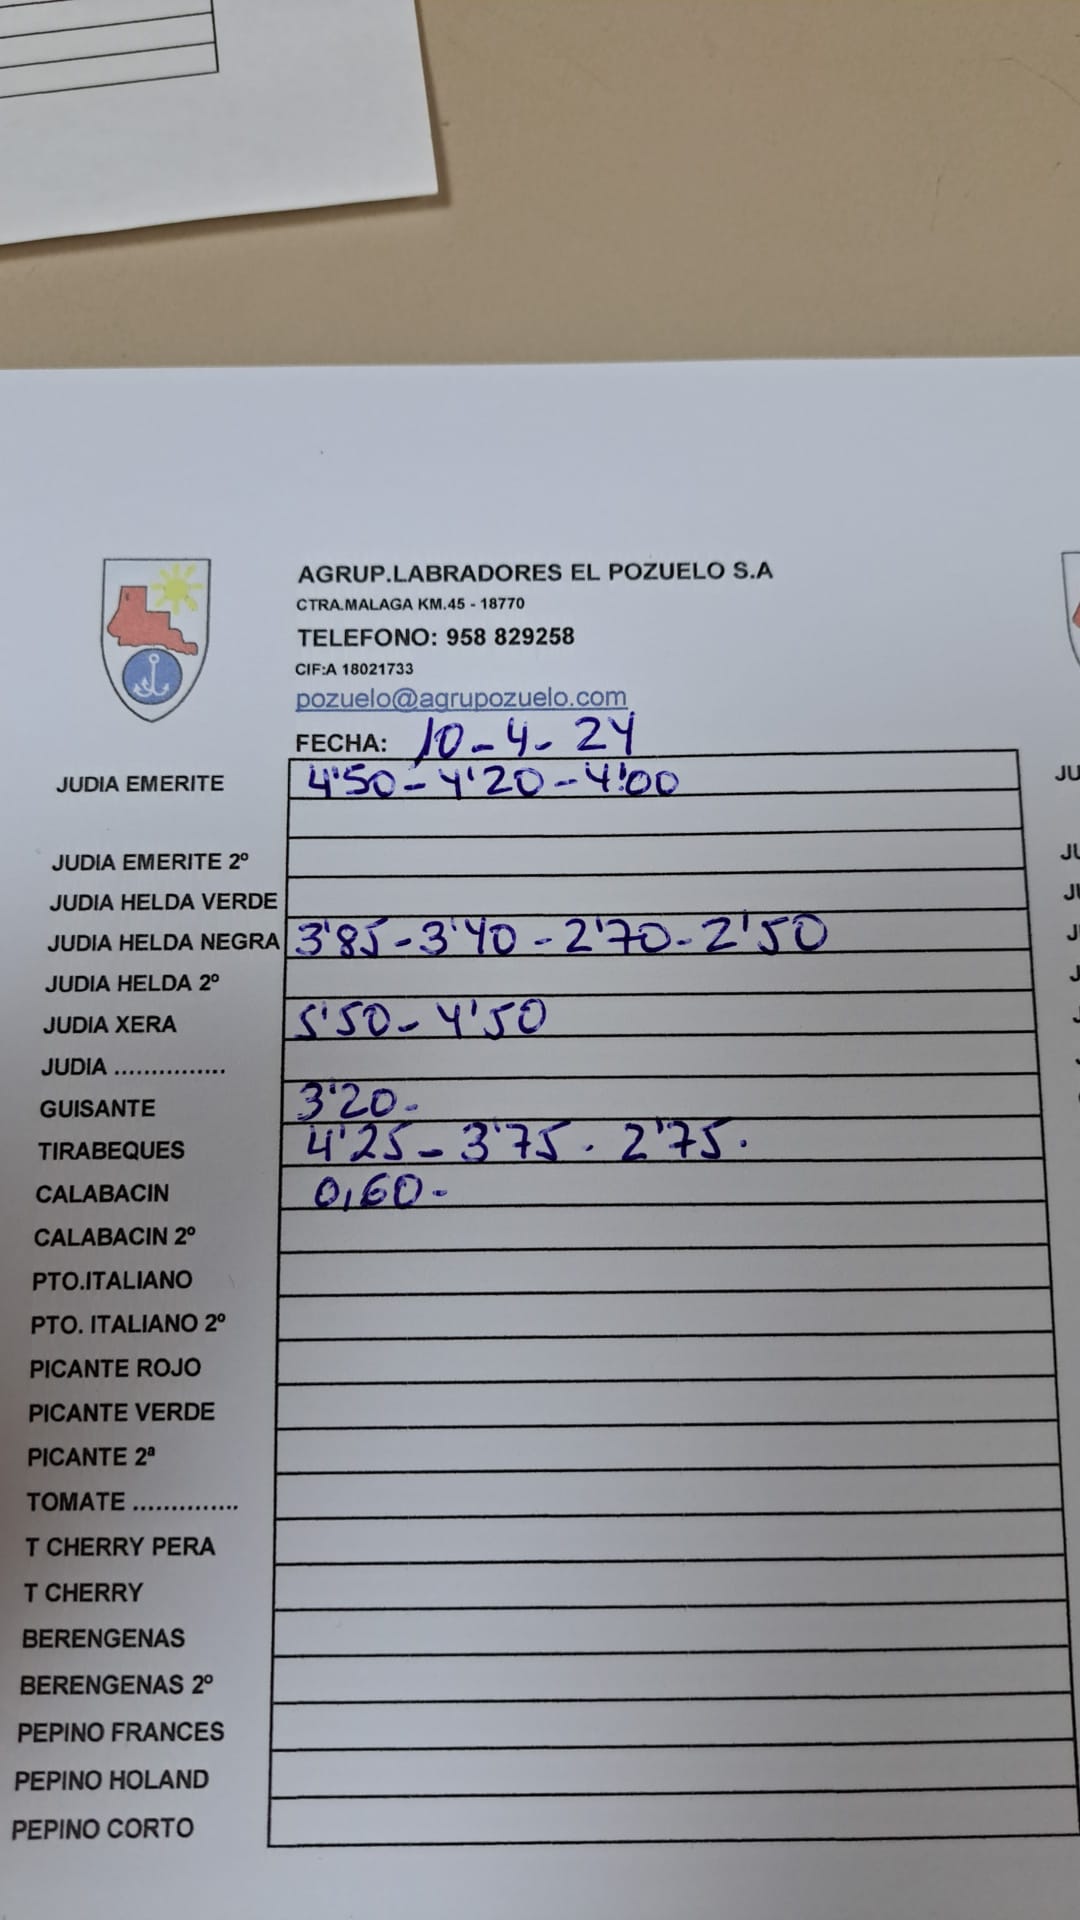 AGRUP.LABRADORES EL POZUELO S.A
CTRA.MALAGA KM.45 - 18770
TELEFONO: 958 829258
CIF:A 18021733
pozuelo@agrupozuelo.com
FECHA: 10-4-24
JUDIA EMERITE 4'50-4'20-4'00
JUDIA EMERITE 2º
JUDIA HELDA VERDE
JUDIA HELDA NEGRA 3'85-3'40-2'70-2'50
JUDIA HELDA 2º
JUDIA XERA 5'50-4'50
JUDIA ...............
GUISANTE 3'20-
TIRABEQUES 4'25-3'75. 2'75.
CALABACIN 0,60-
CALABACIN 2º
PTO.ITALIANO
PTO. ITALIANO 2º
PICANTE ROJO
PICANTE VERDE
PICANTE 2ª
TOMATE ..............
T CHERRY PERA
T CHERRY
BERENGENAS
BERENGENAS 2º
PEPINO FRANCES
PEPINO HOLAND
PEPINO CORTO